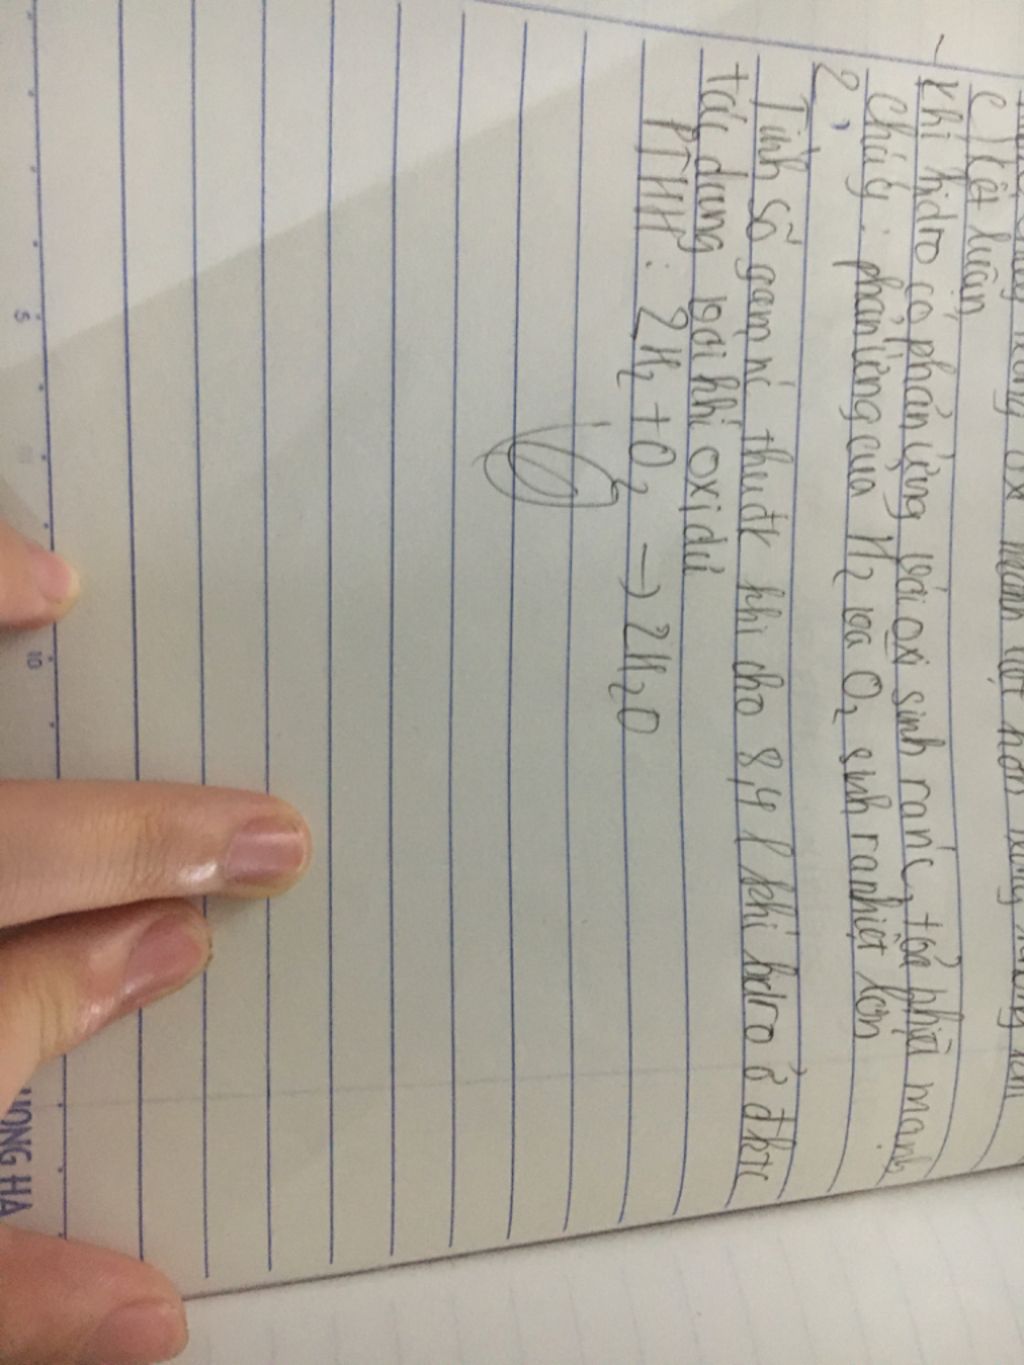 c) Kết luận
- Khí hidro có phản ứng với oxi sinh ra nc, toả nhiệt mạnh
Chú ý: phản ứng của H2 và O2 sinh ra nhiệt lớn
2,
Tính số gam nc thuđk khi cho 8,4 l khí hdro ở đktc
tác dụng với khí oxi dư
PTHH: 2H2 + O2 → 2H2O
5
10
HONG HA